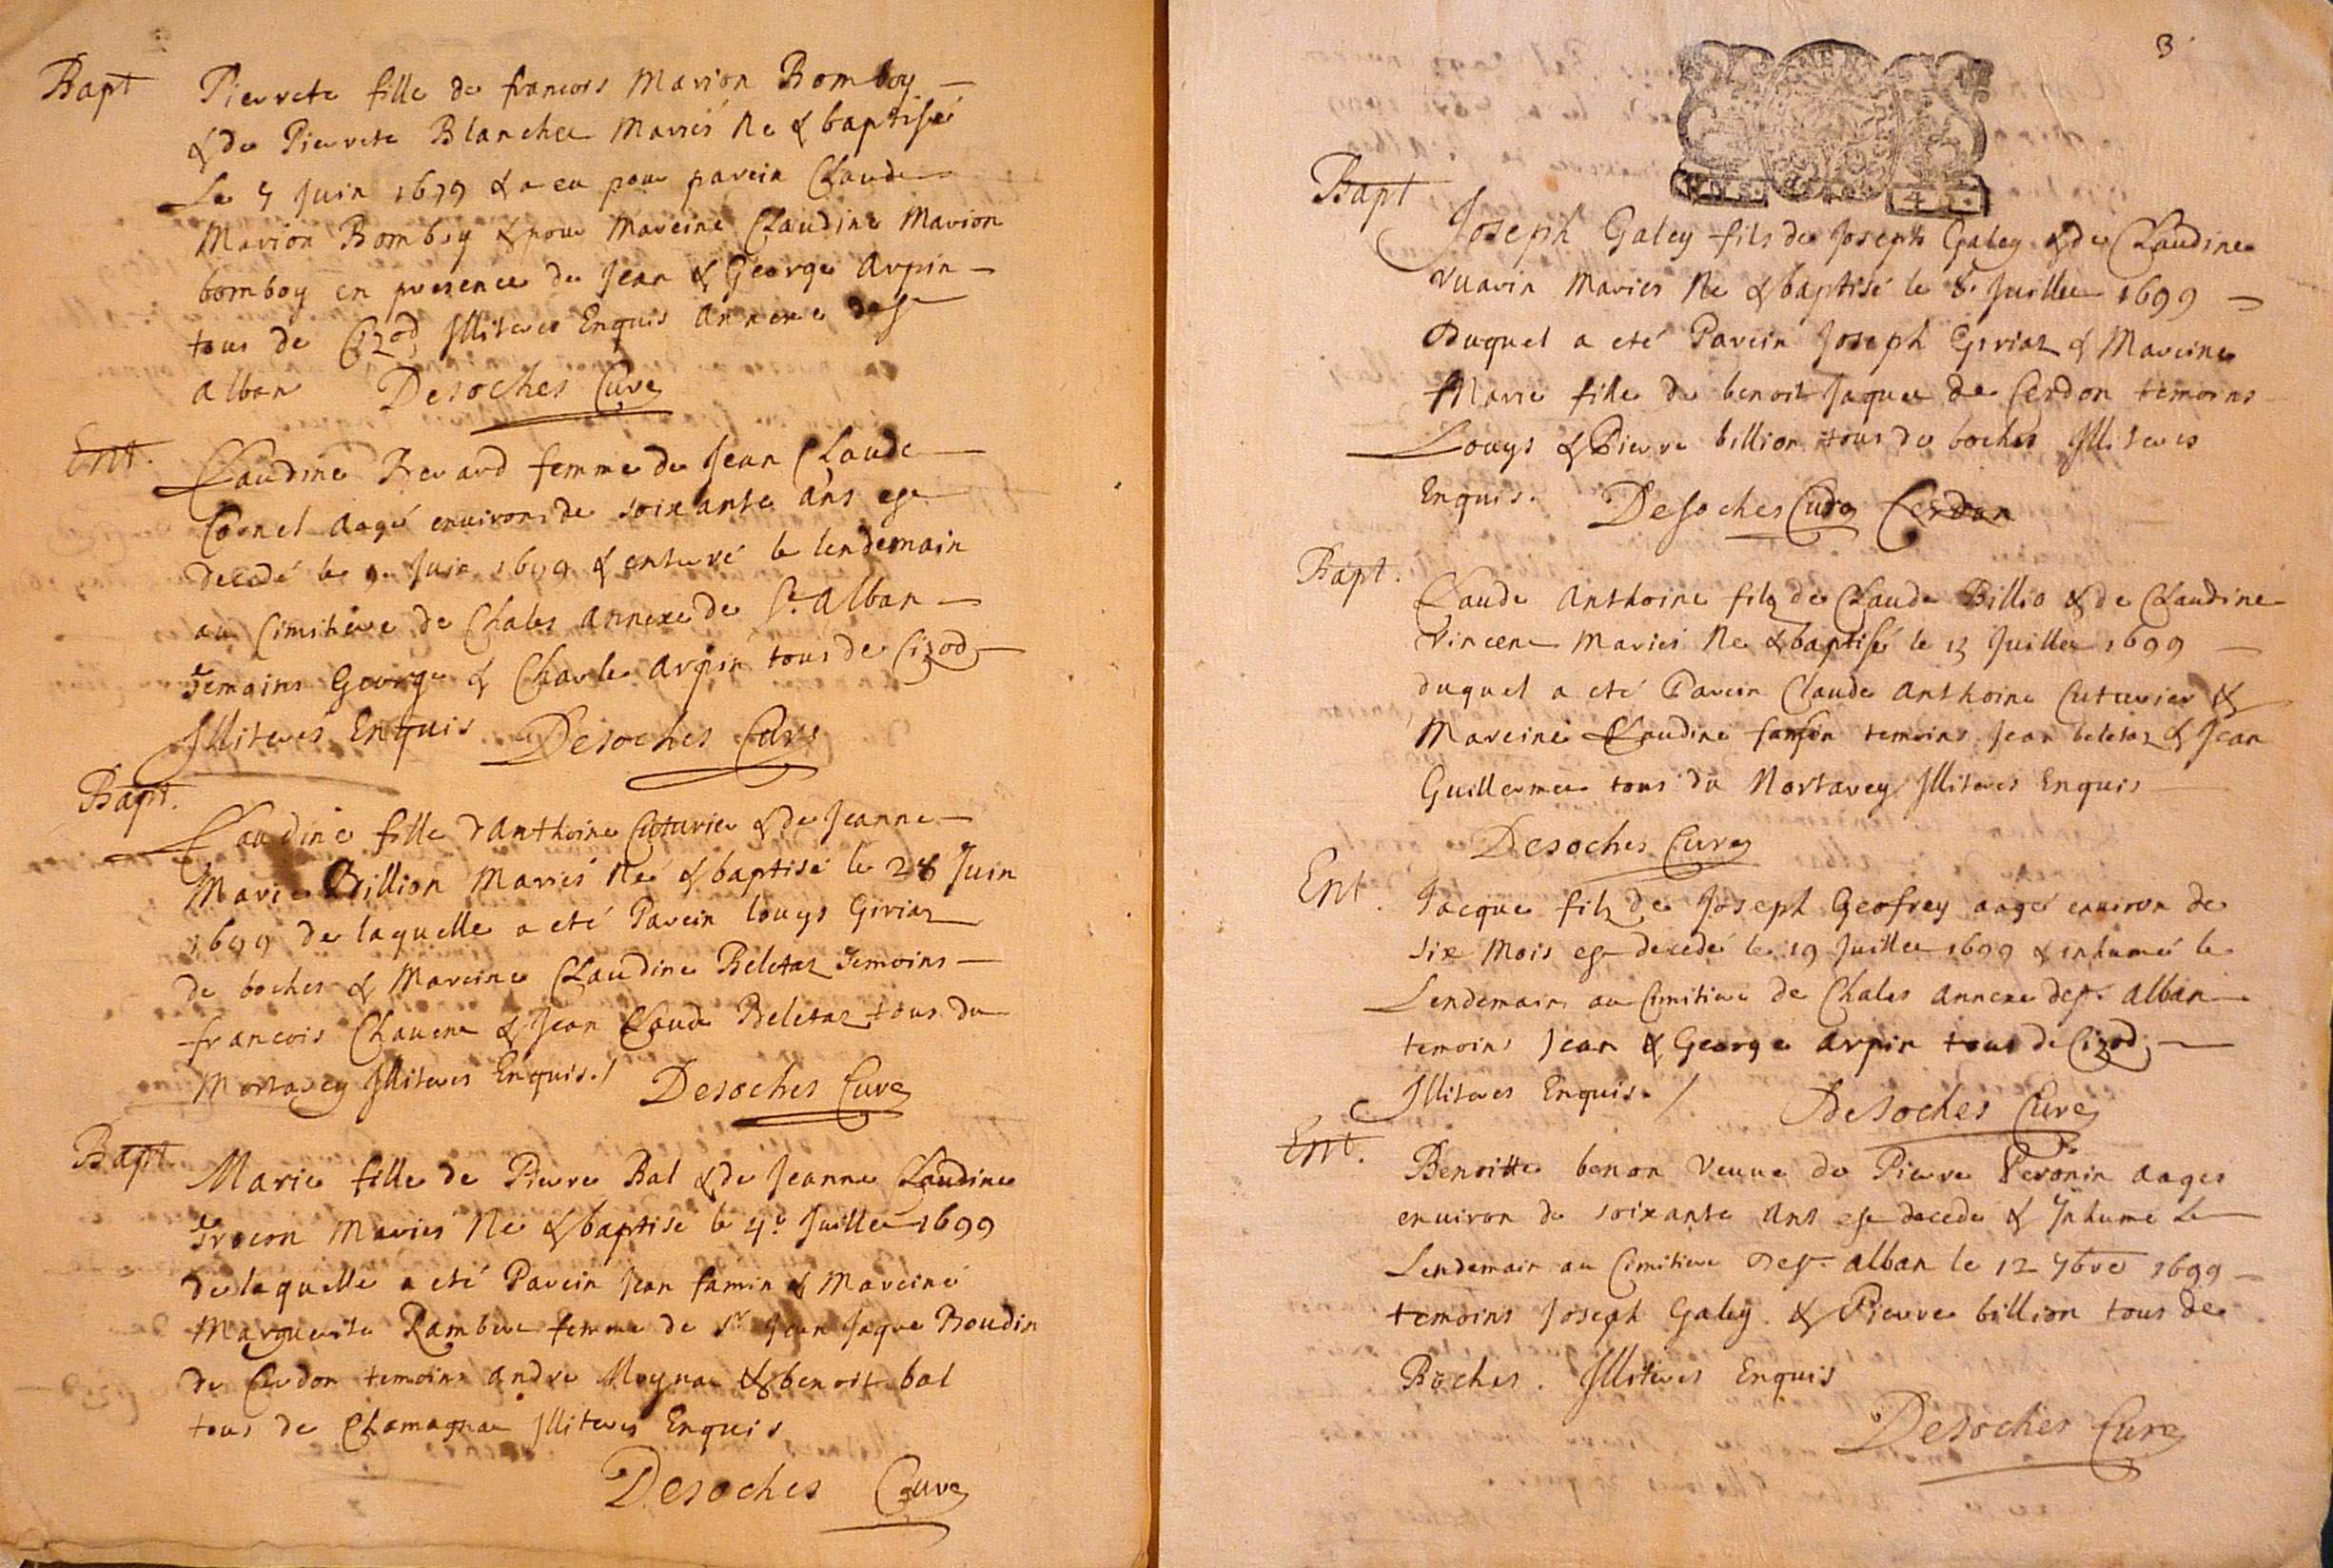 Bapt
Pierrete fille de francois Marion Bomboy
& de Pierrete Blanchet Mariés Ne & baptisé
Le 7 Juin 1699 & a eu pour parein Claude
Marion Bomboy & pour Mareine Claudine Marion
bomboy en presence de Jean & George Arpin
tous de Cizod Illiteres Enquis annexe de St
alban Desoches Curé
Ent.
Claudine Berard femme de Jean Claude
Cornel aagé environ de soixante ans est
decedé le 9 Juin 1699 & enterré le lendemain
au Cimitiere de Chales annexe de St alban
Temoins George & Charle Arpin tous de Cizod
Illiteres Enquis Desoches Curé
Bapt.
Claudine fille d'Anthoine Cuturier & de Jeanne
Marie Billion Mariés Né & baptisé le 28 Juin
1699 de laquelle a eté Parein louys Giriaz
de boches & Mareine Claudine Beletaz Temoins
francois Chavent & Jean Claude Beletaz tous du
Mortarey Illiteres Enquis./ Desoches Curé
Bapt
Marie fille de Pierre Bal & de Jeanne Claudine
Mariés Né & baptisé le 4e Juillet 1699
de laquelle a eté Parein Jean famin & Mareine
Marguerite Rambert femme de Sr Jean Jaque Boudin
de Cerdon temoins andre Moynat & benoit bal
tous de Chamagnat Illiteres Enquis
Desoches Curé
3
Bapt
Joseph Galey fils de Joseph Galey & de Claudine
vuarin Mariés Né & baptisé le 8 Juillet 1699
Duquel a eté Parein Joseph Giriaz & Mareine
Marie fille de benoit Jaquet de Cerdon temoins
Louys & Pierre billion tous de boches Illiteres
Enquis. Desoches Curé Cerdon
Bapt.
Claude Anthoine filz de Claude Billio & de Claudine
Vincent Mariés Né & baptisé le 13 Juillet 1699
duquel a eté Parein Claude Anthoine Cuturier &
Mareine Claudine temoins Jean beletaz & Jean
Guillermet tous du Mortarey Illiteres Enquis
Desoches Curé
Ent.
Jacque filz de Joseph Geofrey aagé environ de
six Mois est decedé le 19 Juillet 1699 & inhumé le
Lendemain au Cimitiere de Chales annexe de St alban
temoins Jean & George arpin tous de Cizod
Illiteres Enquis./ Desoches Curé
Ent.
Benoitte benon veuve de Pierre Peronin aagee
environ de soixante ans est decede & Inhumé Le
Lendemain au Cimitiere de St alban le 12 7bre 1699
temoins Joseph Galey & Pierre billion tous de
Boches. Illiteres Enquis
Desoches Curé